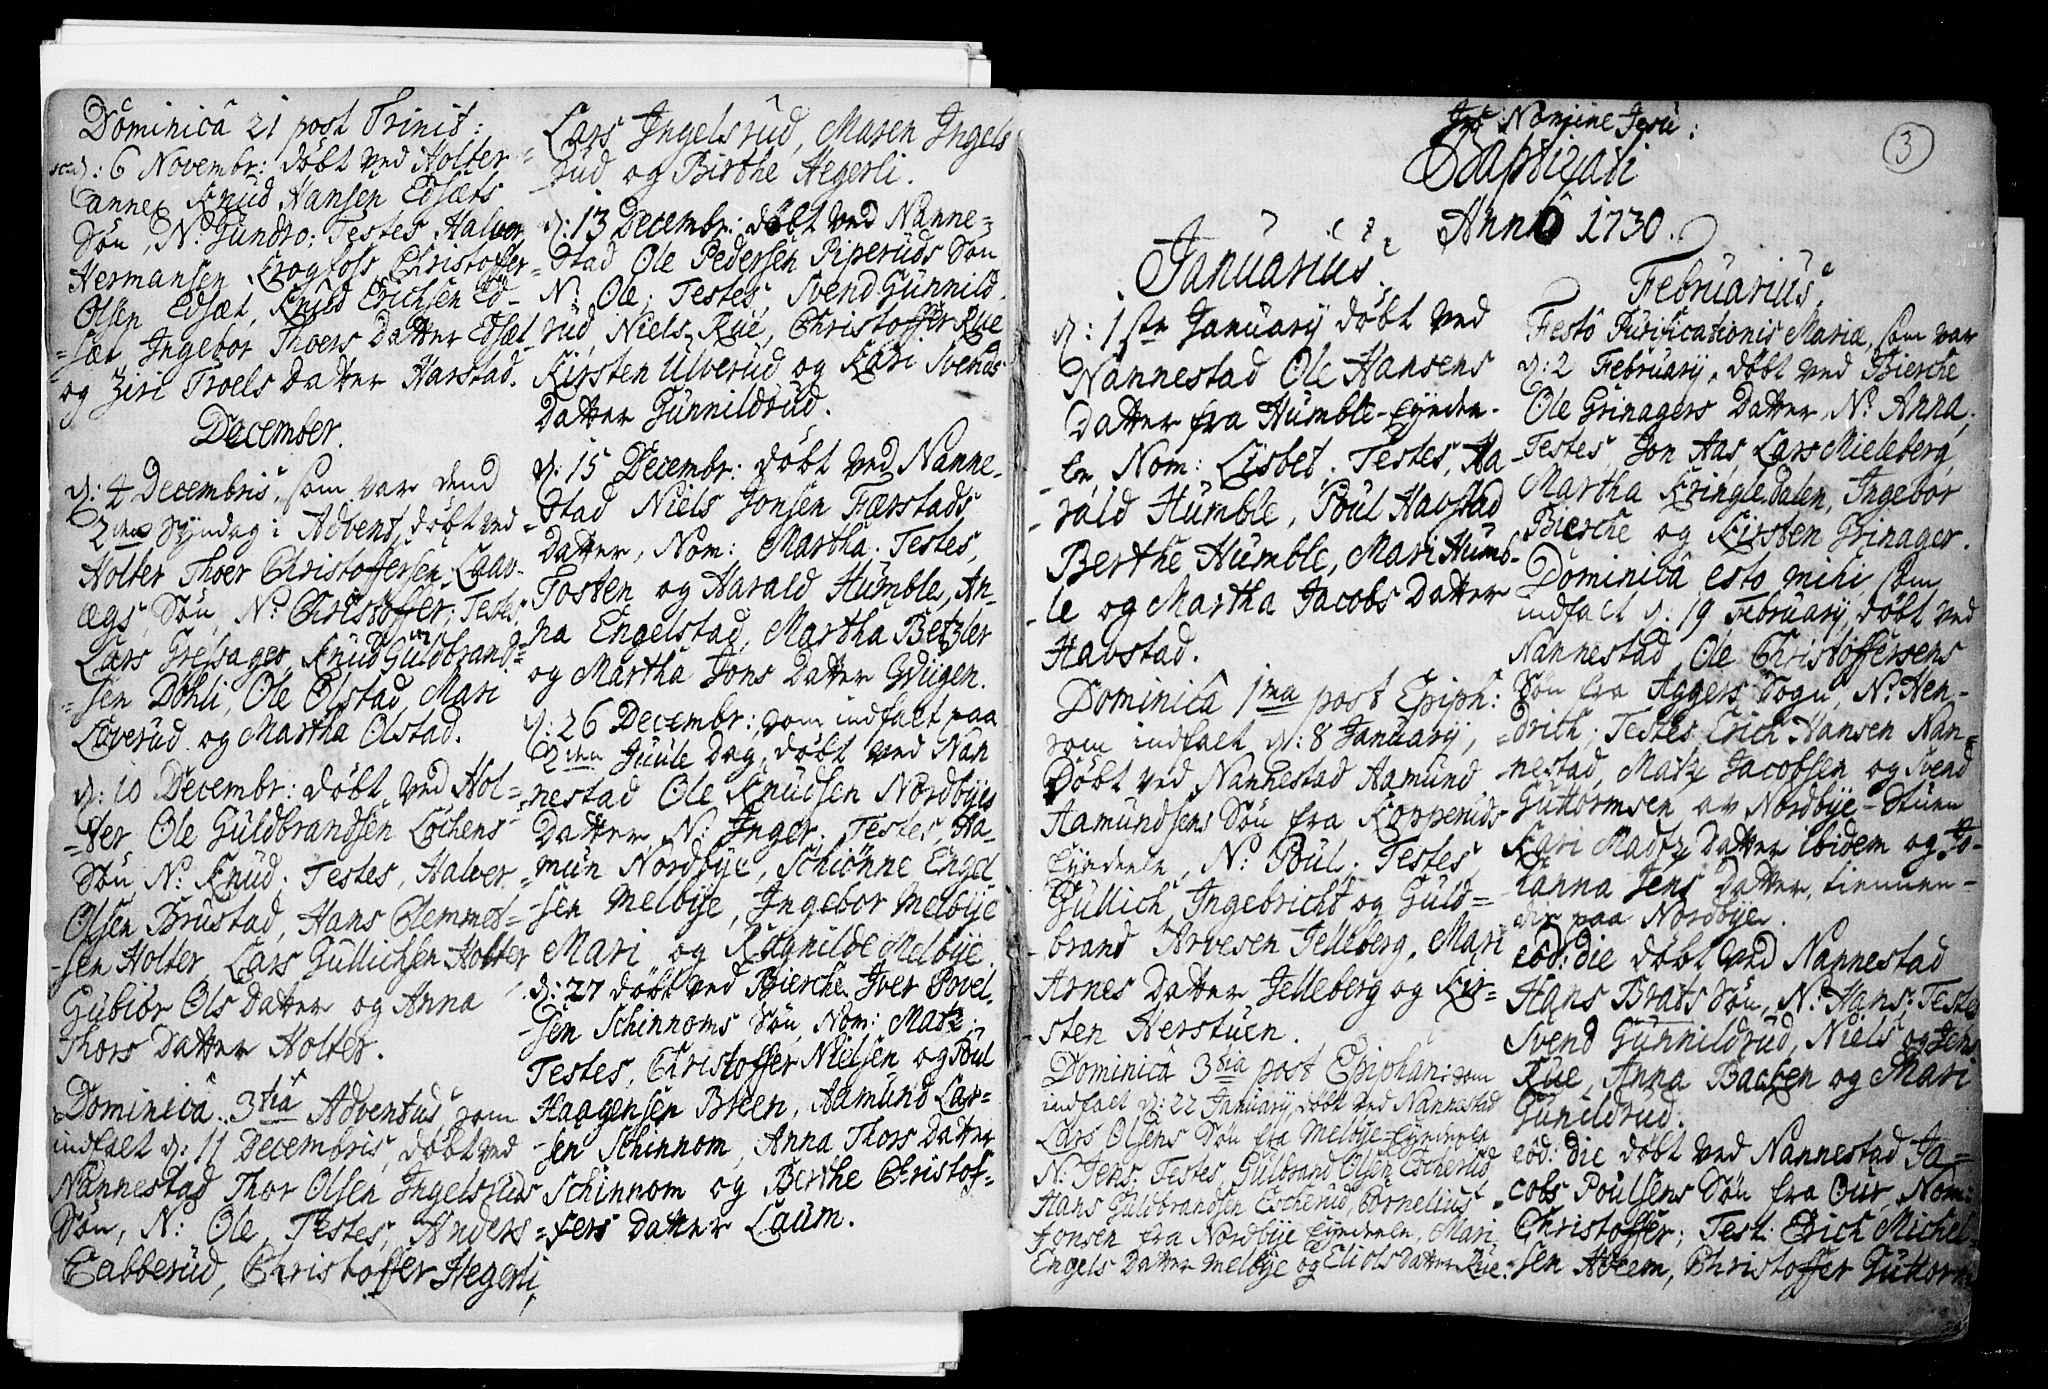 Dominica 21 post Trinit:
d: 6 Novembr: døbt ved Holter
annex Knud Hansen Edsæts
Søn, N: Gundro: Testes Halvor
Hermansen Krogfoss, Christoffer
Olsen Edsæt, Knud Erichsen Ed-
=sæt Ingebor Thoers Datter Edsæt
og Ziri Troels Datter Harstad.
December.
d: 4 Decembris, som var dend
2den Syndag i Advent, døbt ved
Holter Thoer Christoffersen Laav-
ægs Søn, N: Christoffer; Testes,
Lars Gressager, Knud Guldbrand=
=sen Døhli, Ole Olstad, Mari
Løverud og Martha Olstad.
d: 10 Decembr: døbt ved Hol=
=ter, Ole Guldbrandsen Lochens
Søn N: Knud; Testes, Halvor
Olsen Brustad, Hans Clemmet=
-sen Holter, Lars Gullichsen Holter
Gubiør Ols Datter og Anna
Thors Datter Holter.
Dominica 3tia Adventus som
indfalt d: 11 Decembris, døbt ved
Nannestad Thor Olsen Ingelsruds
Søn, N: Ole, Testes, Anders
Cabberud, Christoffer Hegerli,
Lars Ingelsrud, Maren Ingels
rud og Birthe Hegerli.
d: 13 Decembr: døbt ved Nanne=
=stad Ole Pedersen Piperuds Søn
N: Ole; Testes, Svend Gunnild,
rud, Niels Rue, Christoffer Rue
Kirsten Ulverud og Kari Svends
Datter Gunnildrud.
d: 15 Decembr: døbt ved Nanne-
=stad Niels Jonsen Færstads
Datter, Nom: Martha. Testes,
Tosten og Harald Humble, An-
na Engelstad, Martha Betzler
og Martha Jons Datter Wiigen.
d: 26 Decembr: som indfalt paa
2den Juule Dag, døbt ved Nan
nestad Ole Knudsen Nordbyes
Datter N: Inger; Testes, Aa-
=mun Nordbye, Schiønne Engel
-sen Melbye, Ingebor Melbye
Mari og Ragnilde Melbye.
d: 27 døbt ved Bierche Iver Povel,
-sen Schinnoms Søn, Nom: Matz;
Testes, Christoffer Nielsen og Poul
Haagensen Breen, Aamund Lar=
-sen Schinnom, Anna Thors Datter
Schinnom og Berthe Christof=
=fers Datter Laum.
3
In Nomine Jesu:
Baptizati
Anno 1730.
Januarius.
d: 1ste January døbt ved
Nannestad Ole Hansens
Datter fra Humble-Eynde-
-le, Nom: Lisbet. Testes, Ha
-rald Humble, Poul Havstad
Berthe Humble, Mari Humb-
-le og Martha Jacobs Datter
Havstad.
Dominica 1ma post Epiph:
som indfalt d: 8 January,
Døbt ved Nannestad Aamund
Aamundsens Søn fra Kopperuds
Eyendele, N: Poul. Testes,
Gullich, Ingebricht og Guld=
-brand Arvesen Jelleberg, Mari
Arnes Datter Jelleberg og Kir=
-sten Herstuen.
Dominica 3tia post Epiphan: som
indfalt d: 22 January, døbt ved Nannestad
Lars Olsens Søn fra Melbye-Eyendele
N: Jens; Testes, Gulbrand Olsen Escherud
Hans Guldbrandsen Escherud, Cornelius
Jonsen fra Nordbye Eyendele, Mari
Engels Datter Melbye og Eli Ols Datter Rue.
Februarius.
Festo Purificationis Mariæ, som var
d: 2 February, døbt ved Bierche
Ole Grinagers Datter, N: Anna;
Testes, Jon Aas, Lars Mieleberg,
Martha Kringledalen, Ingebor
Bierche og Kirsten Grinager.
Dominica esto mihi som
indfalt d: 19 February, døbt ved
Nannestad, Ole Christoffersens
Søn fra Aggers Sogn, N: Hen-
=drich; Testes Erich Hansen Nan=
nestad, Matz Jacobsen og Svend
Guttormsen av Nordbye-Stuen
Kari Madtz Datter ibidem og Jo-
hanna Jens Datter, tiennen-
de paa Nordbye.
eod: die døbt ved Nannestad
Hans Brats Søn, N: Hans; Testes
Svend Gunnildrud, Niels og Jens
Rue, Anna Bachen og Mari
Gunildrud.
eod: die døbt ved Nannestad Ja=
=cobs Poulsens Søn fra Our, Nom:
Christoffer; Test: Erich Michel-
=sen Aaeem, Christoffer Guttorm